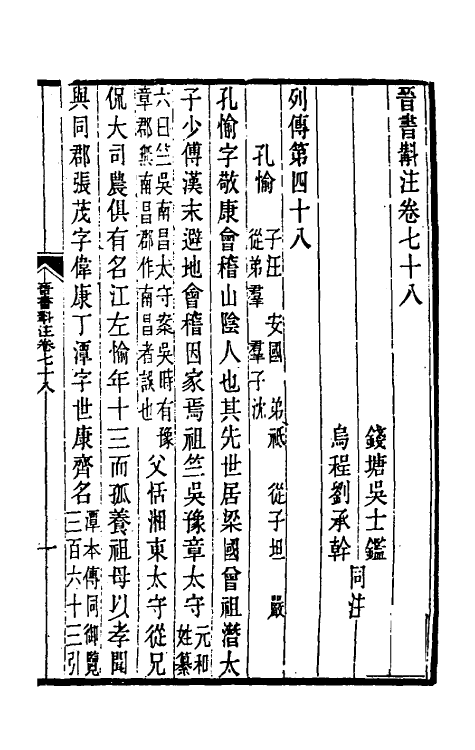 晉書斠注卷七十八
錢塘吳士鑑
烏程劉承幹
同注
列傳第四十八
孔愉 子汪 安國 弟祗 從子坦 嚴
從弟羣 羣子沈
孔愉字敬康會稽山陰人也其先世居梁國曾祖潛太
子少傅漢末避地會稽因家焉祖竺吳豫章太守元和
姓纂
六曰竺吳南昌太守案吳時有豫
章郡無南昌郡作南昌者誤也
父恬湘東太守從兄
侃大司農俱有名江左愉年十三而孤養祖母以孝聞
與同郡張茂字偉康丁潭字世康齊名潭本傳同御覽
三百六十三引
晉書斠注卷七十八
一